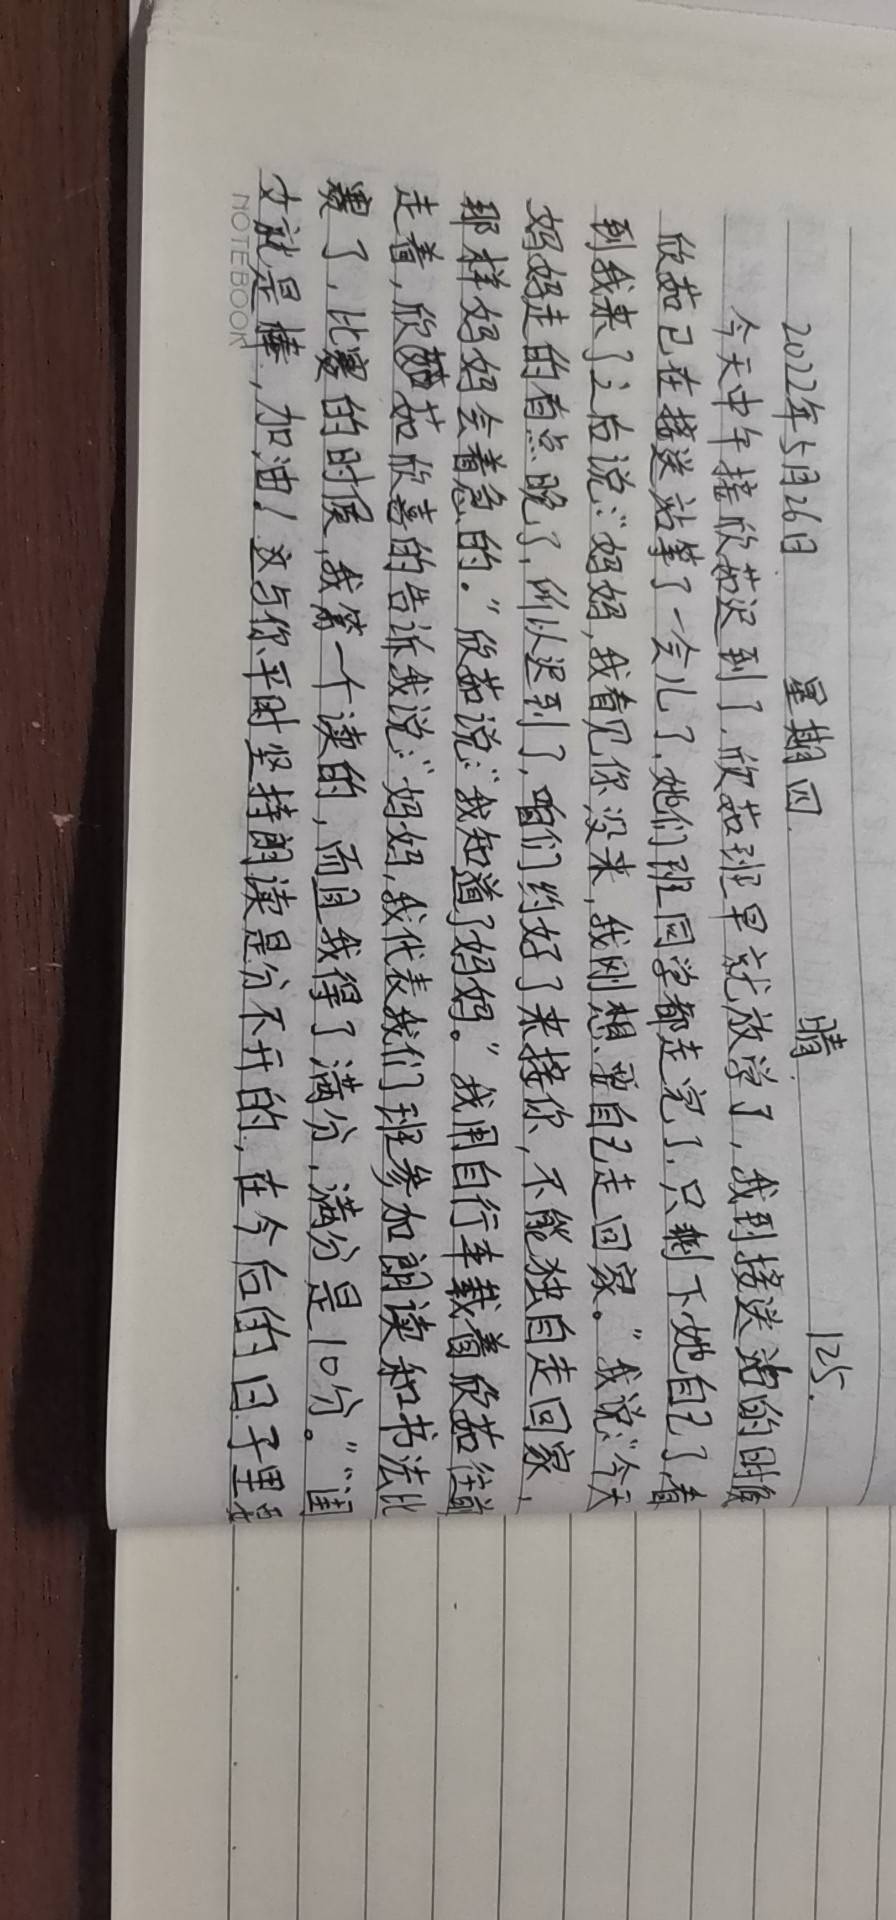 2022年5月26日 星期四. 晴. 125.
今天中午接欣茹迟到了,欣茹班早就放学了,我到接送站的时候
欣茹已在接送站等了一会儿了,她们班同学都走完了,只剩下她自己了看
到我来了之后说:“妈妈,我看见你没来,我刚想要自己走回家。”我说:“今天
妈妈走的有点晚了,所以迟到了,咱们约好了来接你,不能独自走回家,
那样妈妈会着急的.”欣茹说:“我知道了妈妈。”我用自行车载着欣茹往前
走着,欣茹欣喜的告诉我说:“妈妈,我代表我们班参加朗读和书法比
赛了,比赛的时候,我第一个读的,而且我得了满分,满分是10分。”“闺
女就是棒,加油!这与你平时坚持朗读是分不开的,在今后的日子里
NOTEBOOK